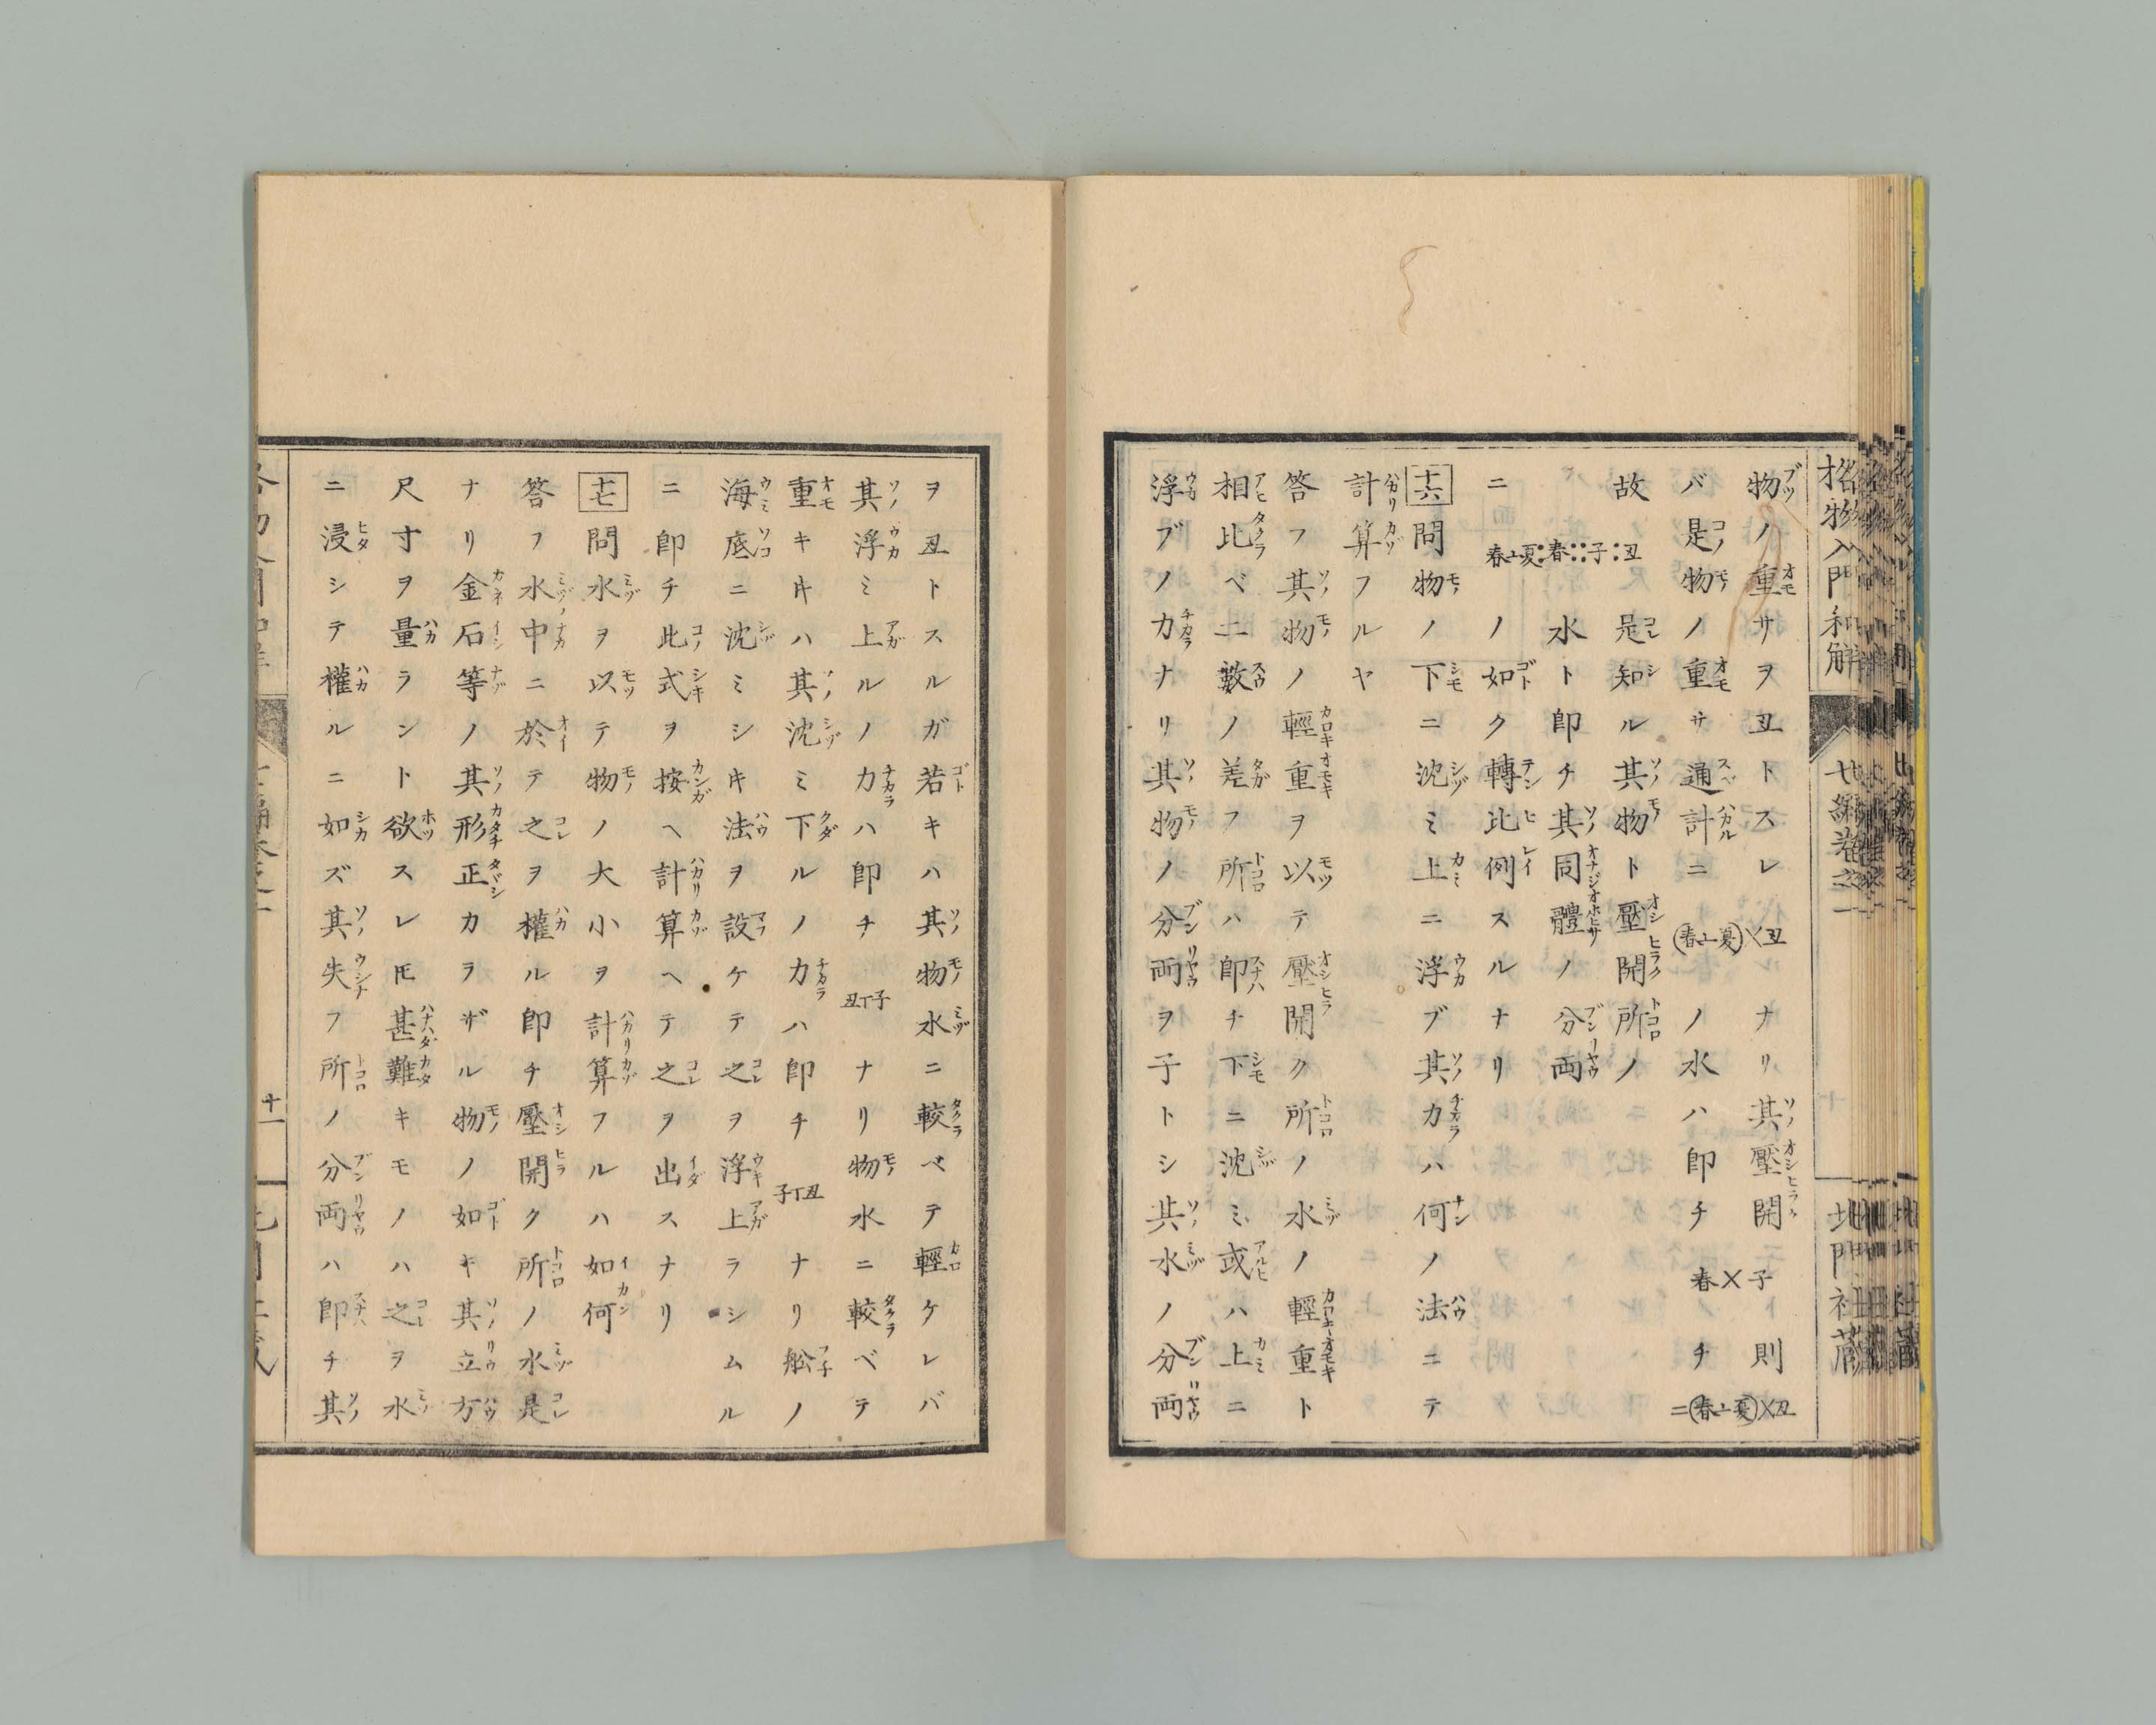 格物入門和解
七編卷之一
北門社蔵
物ノ重サヲ丑トスレ
ナリ其壓開
春×子
則
バ是物ノ重サ通計ニ
(春⊥夏)×丑
ノ水ハ即チ
チ
(春⊥夏)×丑
ニ
故是知ル其物ト壓開所ノ
水ト即チ其同體ノ分両
ニ
春⊥夏∶春∷子∶丑
ノ如ク轉比例スルナリ
十六
問物ノ下ニ沈ミ上ニ浮ブ其力ハ何ノ法ニテ
計算フルヤ
答フ其物ノ輕重ヲ以テ壓開ク所ノ水ノ輕重ト
相比ベ二數ノ差フ所ハ即チ下ニ沈ミ或ハ上ニ
浮ブノ力ナリ其物ノ分両ヲ子トシ其水ノ分両
ヲ丑トスルガ若キハ其物水ニ較ベテ輕ケレバ
其浮ミ上ルノ力ハ即チ
丑丅子
ナリ物水ニ較ベテ
重キキハ其沈ミ下ルノ力ハ即チ
子丅丑
ナリ舩ノ
海底ニ沈ミシキ法ヲ設ケテ之ヲ浮上ラシムル
ニ即チ此式ヲ按ヘ計算ヘテ之ヲ出スナリ
十七
問水ヲ以テ物ノ大小ヲ計算フルハ如何
答フ水中ニ於テ之ヲ權ル即チ壓開ク所ノ水是
ナリ金石等ノ其形正カラザル物ノ如キ其立方
尺寸ヲ量ラント欲スレ𪜈甚難キモノハ之ヲ水
ニ浸シテ權ルニ如ズ其失フ所ノ分両ハ即チ其
十一